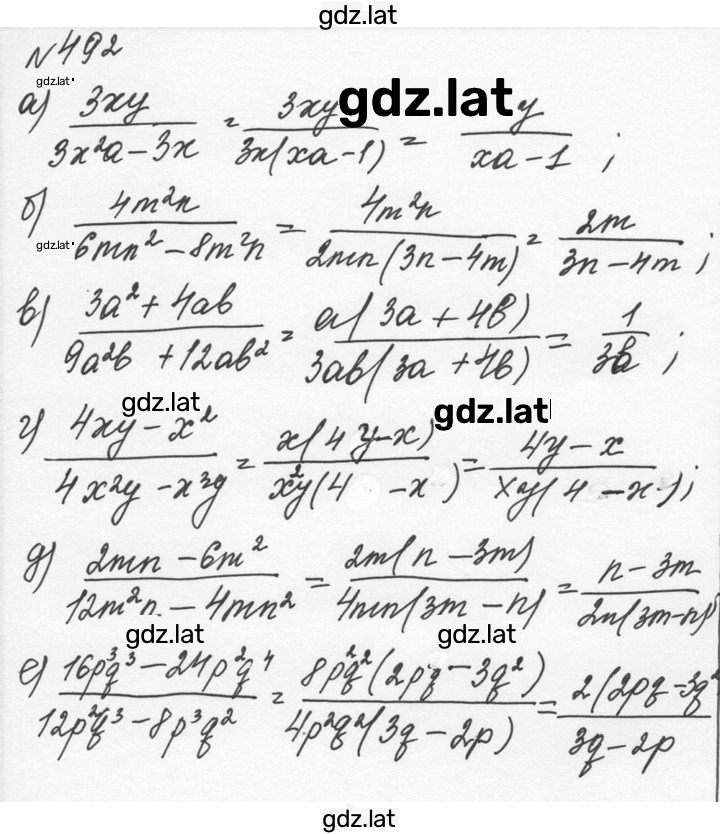 gdz.lat
№492
gdz.lat
а) 3xy / 3x²a − 3x = 3xy / 3x(xa − 1) = y / xa − 1 ;
gdz.lat
б) 4m²n / 6mn² − 8m²n = 4m²n / 2mn(3n − 4m) = 2m / 3n − 4m ;
gdz.lat
в) 3a² + 4ab / 9a²b + 12ab² = a(3a + 4b) / 3ab(3a + 4b) = 1 / 3b ;
gdz.lat
gdz.lat
г) 4xy − x² / 4x²y − x³y = x(4y − x) / x²y(4 − x) = 4y − x / xy(4 − x) ;
д) 2mn − 6m² / 12m²n − 4mn² = 2m(n − 3m) / 4mn(3m − n) = n − 3m / 2n(3m − n)
gdz.lat
gdz.lat
е) 16p³q³ − 24p²q⁴ / 12p²q³ − 8p³q² = 8p²q²(2pq − 3q²) / 4p²q²(3q − 2p) = 2(2pq − 3q² / 3q − 2p
gdz.lat